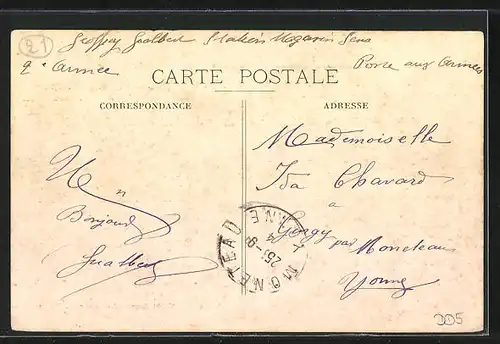 21
Station Magasin Sens
2e Armée Poste aux Armées
CARTE POSTALE
CORRESPONDANCE
ADRESSE
Un
Bonjour
Mademoiselle
Ida Chavard
à
Gurgy par Moneteau
Yonne
MONETEAU
YONNE
D05